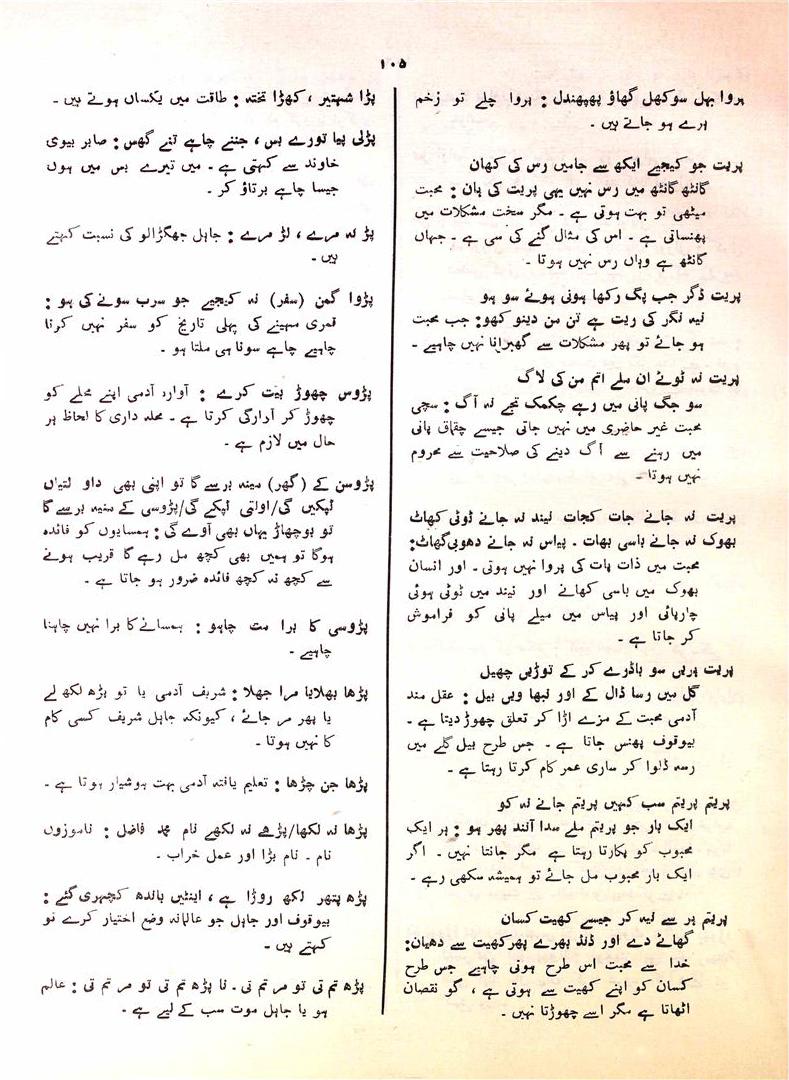 ۱۰۵
پروا بہل سوکھل گھاؤ پھپھندل : پروا چلے تو زخم
ہرے ہو جاتے ہیں ۔
پریت جو کیجیے ایکھ سے جامیں رس کی کھان
گانٹھ گانٹھ میں رس نہیں یہی پریت کی بان : محبت
میٹھی تو بہت ہوتی ہے ۔ مگر سخت مشکلات میں
پھنساتی ہے ۔ اس کی مثال گنے کی سی ہے ۔ جہاں
گانٹھ ہے وہاں رس نہیں ہوتا ۔
پریت ڈگر جب پگ رکھا ہونی ہوئے سو ہو
نیہ نگر کی ریت ہے تن من دینو کھو : جب محبت
ہو جائے تو پھر مشکلات سے گھبرانا نہیں چاہیے ۔
پریت نہ ٹوٹے ان ملے اتم من کی لاگ
سو جگ پانی میں رہے چکمک تجے نہ آگ : سچی
محبت غیر حاضری میں نہیں جاتی جیسے چقماق پانی
میں رہنے سے آگ دینے کی صلاحیت سے محروم
نہیں ہوتا ۔
پریت نہ جانے جات کجات نیند نہ جانے ٹوٹی کھاٹ
بھوک نہ جانے باسی بھات ۔ پیاس نہ جانے دھوبی گھاٹ :
محبت میں ذات پات کی پروا نہیں ہوتی ۔ اور انسان
بھوک میں باسی کھانے اور نیند میں ٹوٹی ہوئی
چارپائی اور پیاس میں میلے پانی کو فراموش
کر جاتا ہے ۔
پریت پریں سو باڈرے کر کے توڑیں چھیل
گل میں رسا ڈال کے اور نبھا ویں بیل : عقل مند
آدمی محبت کے مزے اڑا کر تعلق چھوڑ دیتا ہے ۔
بیوقوف پھنس جاتا ہے ۔ جس طرح بیل گلے میں
رسہ ڈلوا کر ساری عمر کام کرتا رہتا ہے ۔
پریتم پریتم سب کہیں پریتم جانے نہ کو
ایک بار جو پریتم ملے سدا آنند پھر ہو : ہر ایک
محبوب کو پکارتا رہتا ہے مگر جانتا نہیں ۔ اگر
ایک بار محبوب مل جائے تو ہمیشہ سکھی رہے ۔
پریتم ہر سے نیہ کر جیسے کھیت کسان
گھاٹے دے اور ڈنڈ بھرے پھر کھیت سے دھیان :
خدا سے محبت اس طرح ہونی چاہیے جس طرح
کسان کو اپنے کھیت سے ہوتی ہے ، گو نقصان
اٹھاتا ہے مگر اسے چھوڑتا نہیں ۔
پڑا شہتیر ، کھڑا تختہ : طاقت میں یکساں ہوتے ہیں ۔
پڑلی پیا تورے بس ، جننے چاہے تنے گھس : صابر بیوی
خاوند سے کہتی ہے ۔ میں تیرے بس میں ہوں
جیسا چاہے برتاؤ کر ۔
پڑ نہ مرے ، لڑ مرے : جاہل جھگڑالو کی نسبت کہتے
ہیں ۔
پڑوا گمن (سفر) نہ کیجیے جو سرب سونے کی ہو :
قمری مہینے کی پہلی تاریخ کو سفر نہیں کرنا
چاہیے چاہے سونا ہی ملتا ہو ۔
پڑوس چھوڑ بیت کرے : آوارہ آدمی اپنے محلے کو
چھوڑ کر آوارگی کرتا ہے ۔ محلہ داری کا لحاظ ہر
حال میں لازم ہے ۔
پڑوسن کے (گھر) مینہ برسے گا تو اپنی بھی داو لتیاں
ٹپکیں گی/اولتی ٹپکے گی/پڑوسی کے مینہ برسے گا
تو بوچھاڑ یہاں بھی آوے گی : ہمسایوں کو فائدہ
ہوگا تو ہمیں بھی کچھ مل رہے گا قریب ہونے
سے کچھ نہ کچھ فائدہ ضرور ہو جاتا ہے ۔
پڑوسی کا برا مت چاہو : ہمسانے کا برا نہیں چاہنا
چاہیے ۔
پڑھا بھلایا مرا جھلا : شریف آدمی یا تو پڑھ لکھ لے
یا پھر مر جائے ، کیونکہ جاہل شریف کسی کام
کا نہیں ہوتا ۔
پڑھا جن چڑھا : تعلیم یافتہ آدمی بہت ہوشیار ہوتا ہے ۔
پڑھا نہ لکھا/پڑھے نہ لکھے نام محمد فاضل : ناموزوں
نام ۔ نام بڑا اور عمل خراب ۔
پڑھ پتھر لکھ روڑا ہے ، اینٹیں باندھ کچہری گئے :
بیوقوف اور جاہل جو عالمانہ وضع اختیار کرے تو
کہتے ہیں ۔
پڑھ تم تی تو مر تم تی ۔ نا پڑھ تم تی تو مر تم تی : عالم
ہو یا جاہل موت سب کے لیے ہے ۔